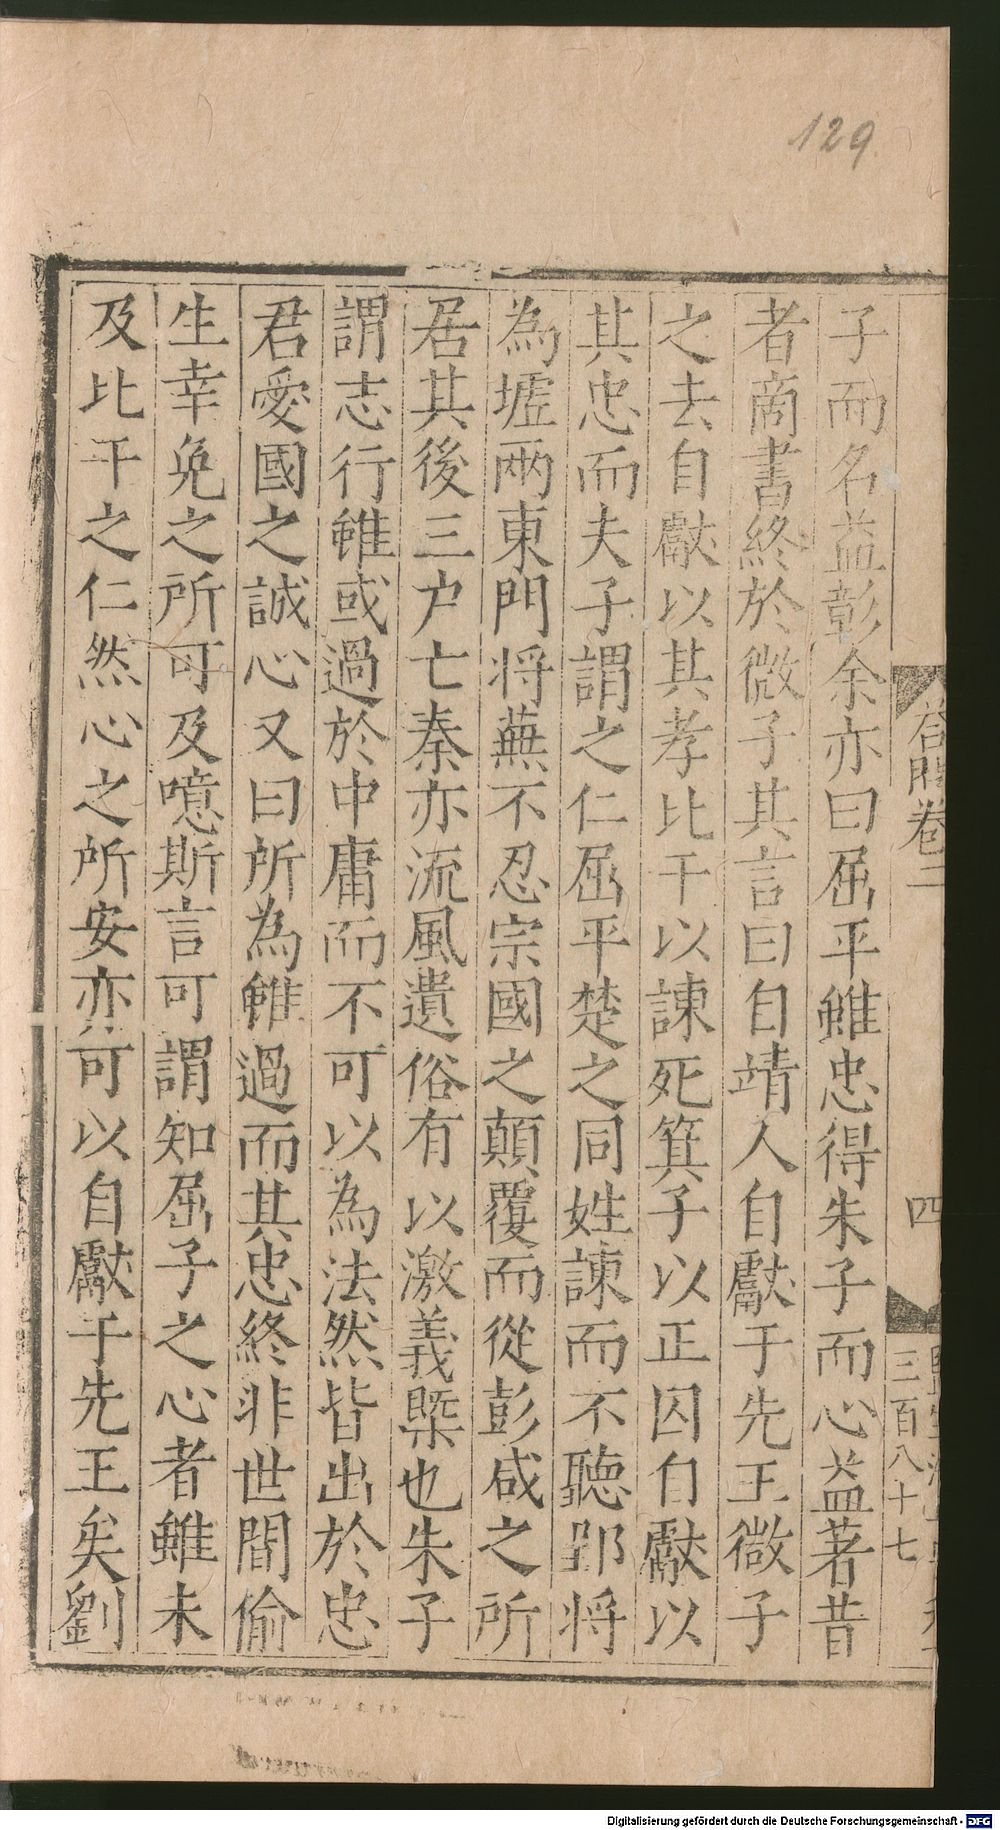 129
子而名益彰余亦曰屈平雖忠得朱子而心益著昔
者商書終於微子其言曰自靖人自獻于先王微子
之去自獻以其孝比干以諫死箕子以正囚自獻以
其忠而夫子謂之仁屈平楚之同姓諫而不聽郢將
為墟兩東門將蕪不忍宗國之顛覆而從彭咸之所
居其後三户亡秦亦流風遺俗有以激義槩也朱子
謂志行雖或過於中庸而不可以為法然皆出於忠
君愛國之誠心又曰所為雖過而其忠終非世間偷
生幸免之所可及噫斯言可謂知屈子之心者雖未
及比干之仁然心之所安亦可以自獻于先王矣劉
卷二
四
三百八十七
Digitalisierung gefördert durch die Deutsche Forschungsgemeinschaft - DFG